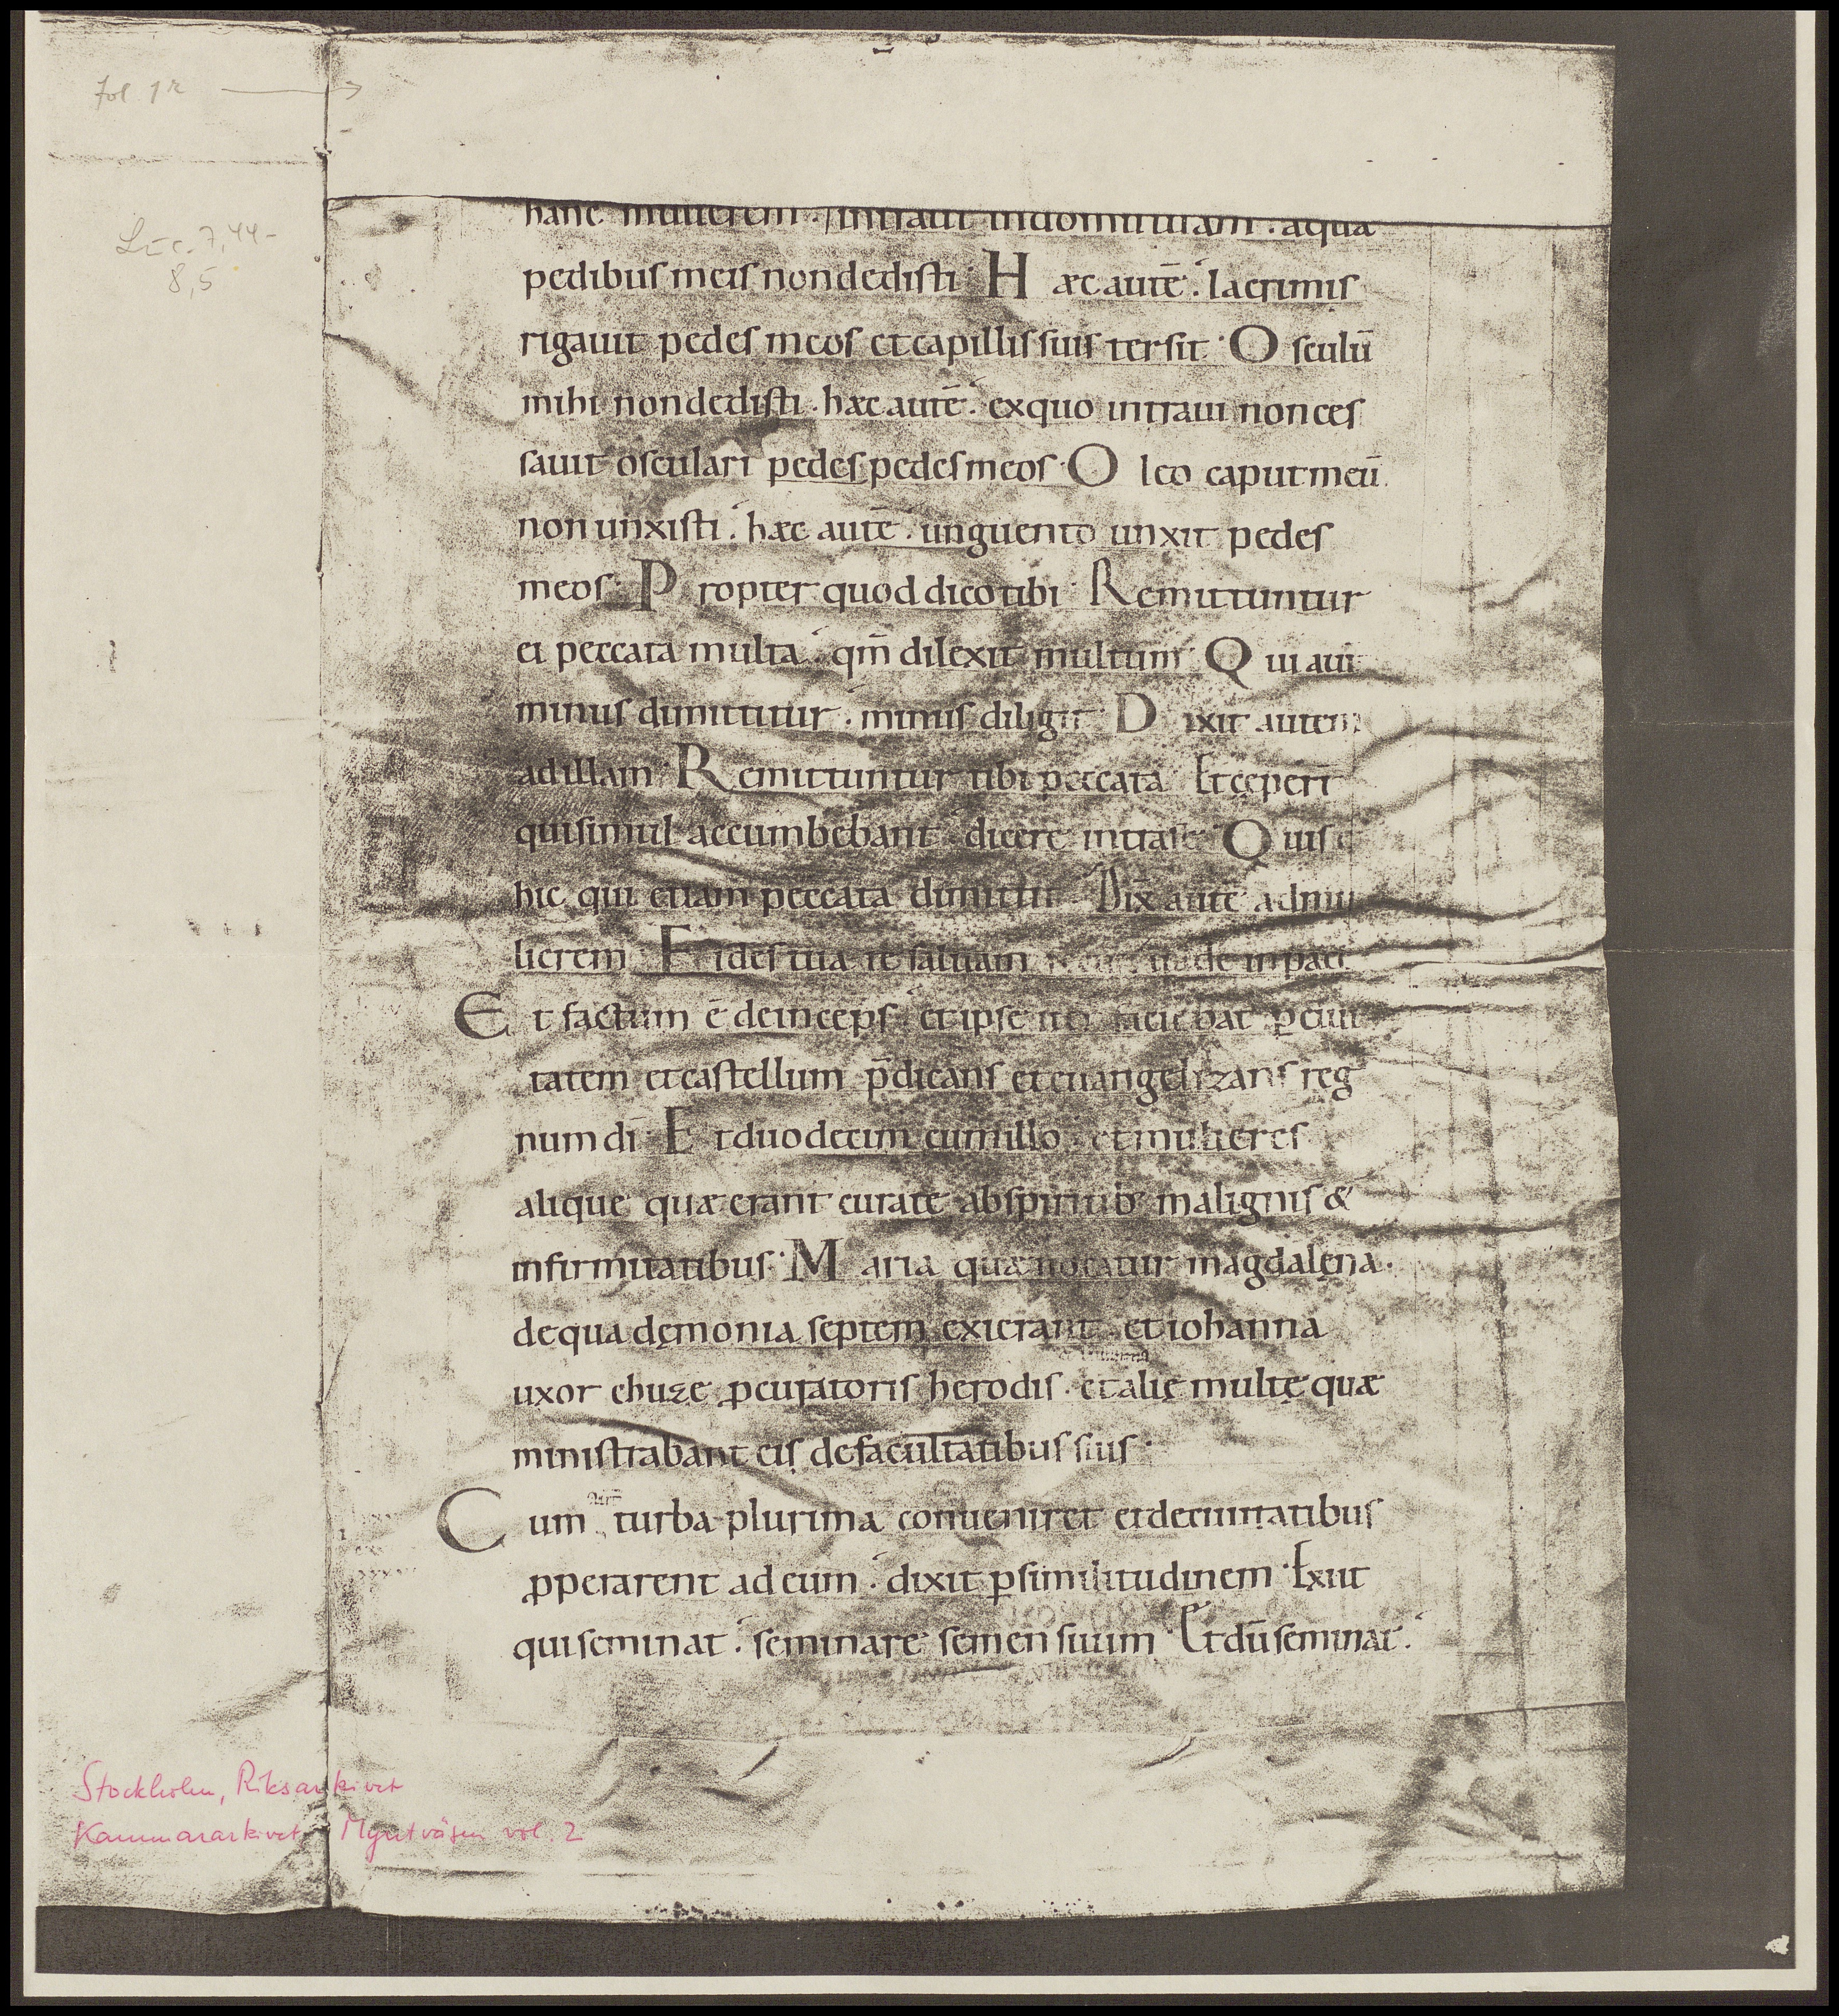 Fol 1r →
Luc. 7,44-
8,5
hanc mulierem. Intraui indomu tuam. aqua
pedibus meis nondedisti. Haec autē. lacrimis
rigauit pedes meos etcapillis suis tersit. Osculū
mihi nondedisti. haec autē. exquo intraui nonces
sauit osculari pedes pedes meos. Oleo caput meū
non unxisti. haec autē. unguento unxit pedes
meos. Propter quod dico tibi. Remittuntur
ei peccata multa. qm̄ dilexit multum. Qui aut
minus dimittitur. minus diligit. Dixit autem
adillam. Remittuntur tibi peccata. Et cępert̄
quisimul accumbebant. dicere intrase. Quis ē
hic qui etiam peccata dimittit. Dix̄ autē admu
lierem. Fides tua te saluam uade inpace
Et factum ē deinceps. et ipse iter faciebat p̱ ciui
tatem etcastellum p̄dicans et euangelizans reg
num dī. Et duodecim cumillo. et mulieres
alique quae erant curate abspiritib; malignis &
infirmitatibus. Maria quae uocatur magdalęna.
dequa dęmonia septem exierant. et iohanna
uxor chuze p̱curatoris herodis. et alię multę quae
ministrabant eis defacultatibus suis.
Cum turba plurima conueniret etdeciuitatibus
p̱perarent ad eum. dixit p̱similitudinem. Exiit
quiseminat. seminare semen suum. Et dū seminat.
Stockholm, Riksarkivet
Kammararkivet Myntväsen vol. 2